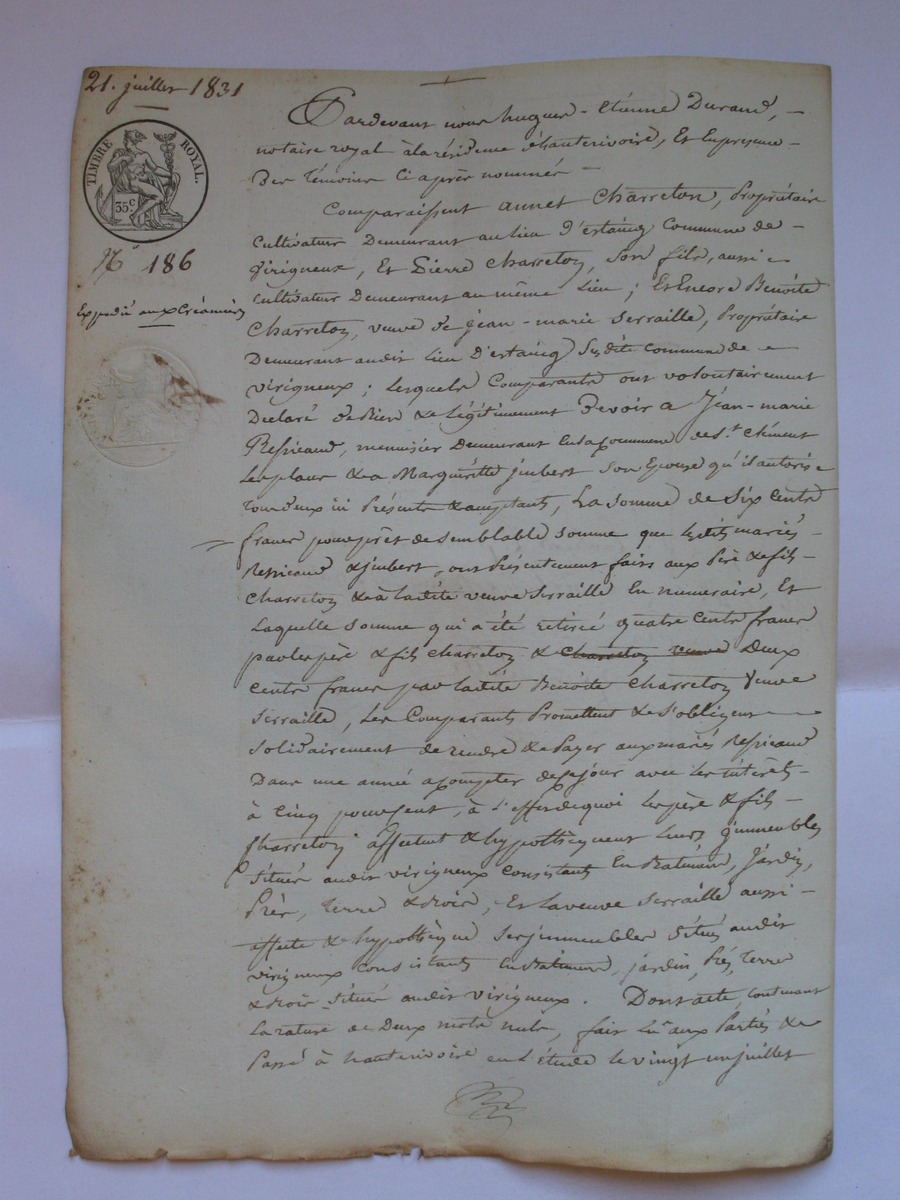 21. juillet 1831
TIMBRE ROYAL.
35 c
N° 186
Expédié aux Créanciers
Pardevant nous hugues-Etienne Durand,
notaire royal à la résidence d'hauterivoire, Et En presence
Des témoins Ci après nommés
Comparaissent annet Charreton, Propriétaire
Cultivateur Demeurant au lieu d'estaing Commune de
Virigneux, Et Pierre Charreton, Son fils, aussi
Cultivateur Demeurant au même lieu ; Et Encore Benoite
Charreton, veuve de Jean-marie Serraille, Propriétaire
Demeurant audit Lieu D'estaing Susdite commune de
virigneux ; Lesquels Comparants ont volontairement
Déclaré et Bien & Légitimement Devoir a Jean-marie
menuisier Demeurant En la Commune de St. Clément
Les places & a Marguéritte jmbert Son Epouse qu'il autorise
tous deux ici Présents & acceptants, La Somme de Six Cents
francs pour prêt de semblable somme que lesdits mariés
& jmbert, ont Présentement fait aux Père & fils
Charreton & à la dite veuve Serraille En numeraire, Et
Laquelle Somme qui a été retirée quatre Cents francs
par les père & fils Charreton & Charreton veuve Deux
Cents francs par la dite Benoite Charreton Veuve
Serraille, Les Comparants Promettent & s'obligent
Solidairement de rendre & Payer aux mariés
Dans une année a compter de ce jour avec Les intérêts
à Cinq pour Cent, à l'effet de quoi Les père & fils
Charreton affectent & hypothèquent Leurs jmmeubles
Situés audit virigneux Consistants En Batiment, Jardin,
Près, Terre & bois, Et La veuve Serraille aussi
affecte & hypothèque Ses jmmeubles Situés audit
virigneux Consistants En Batiment, jardin, Prés, Terre
& bois Situés audit Virigneux. Dont acte, contenant
La rature de Deux mots nuls, fait Lu aux Parties &
Passé à hauterivoire en L'étude le vingt un juillet